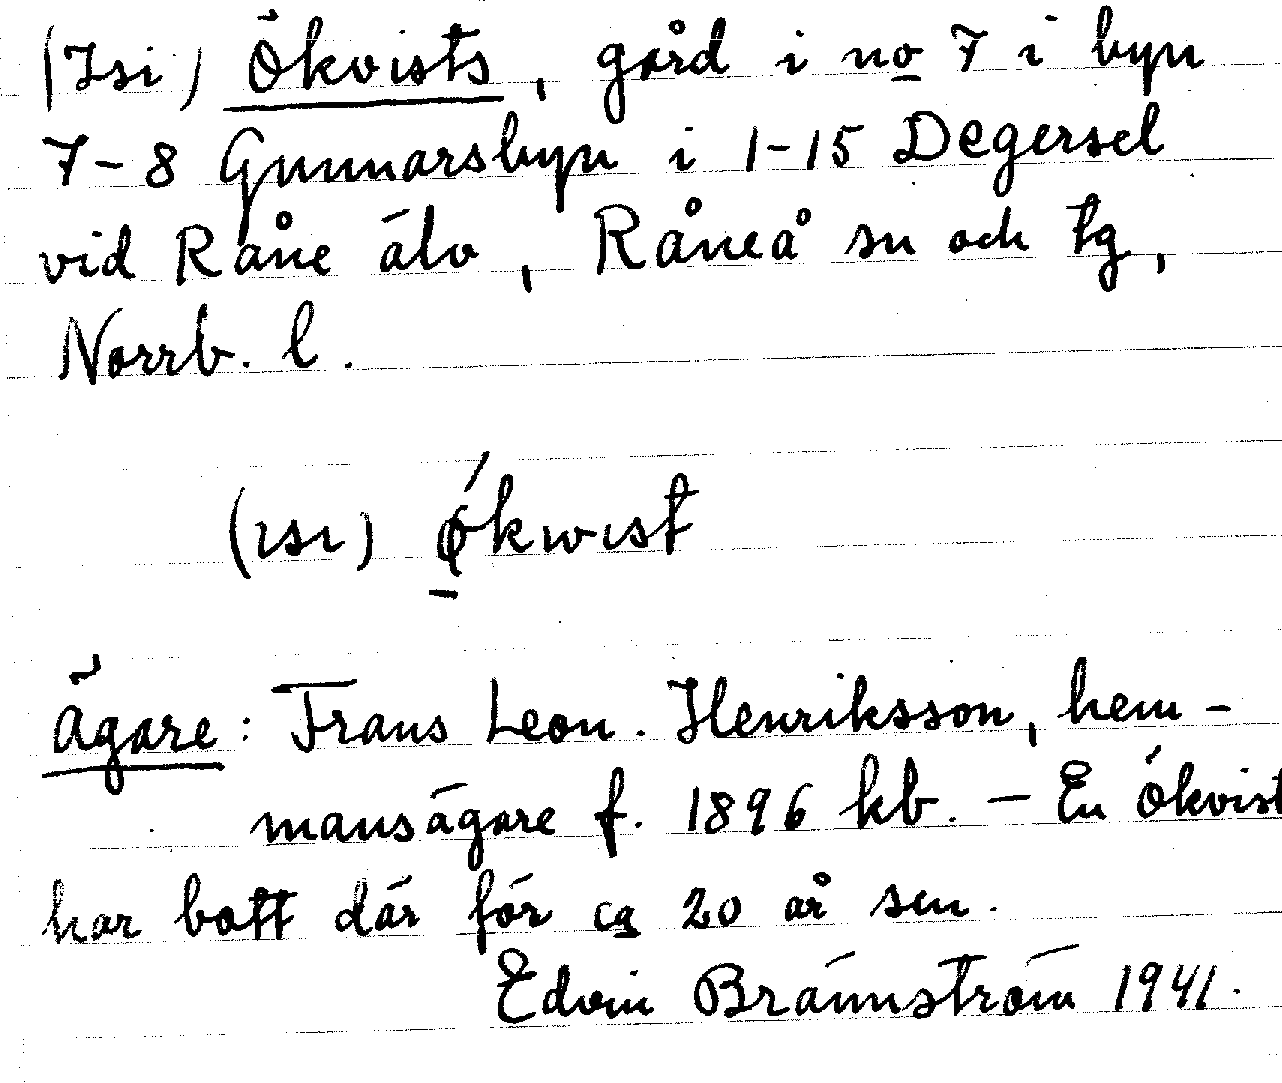 (Isi) Ökvists, gård i no 7 i byn
7-8 Gunnarsbyn i 1-15 Degersel
vid Råne älv, Råneå sn och tg,
Norrb. l.
(ısı) ǿkwıst
Ägare: Frans Leon. Henriksson, hem-
mansägare f. 1896 kb. — En Ökvist
har bott där för ca 20 år sen.
Edvin Brännström 1941.